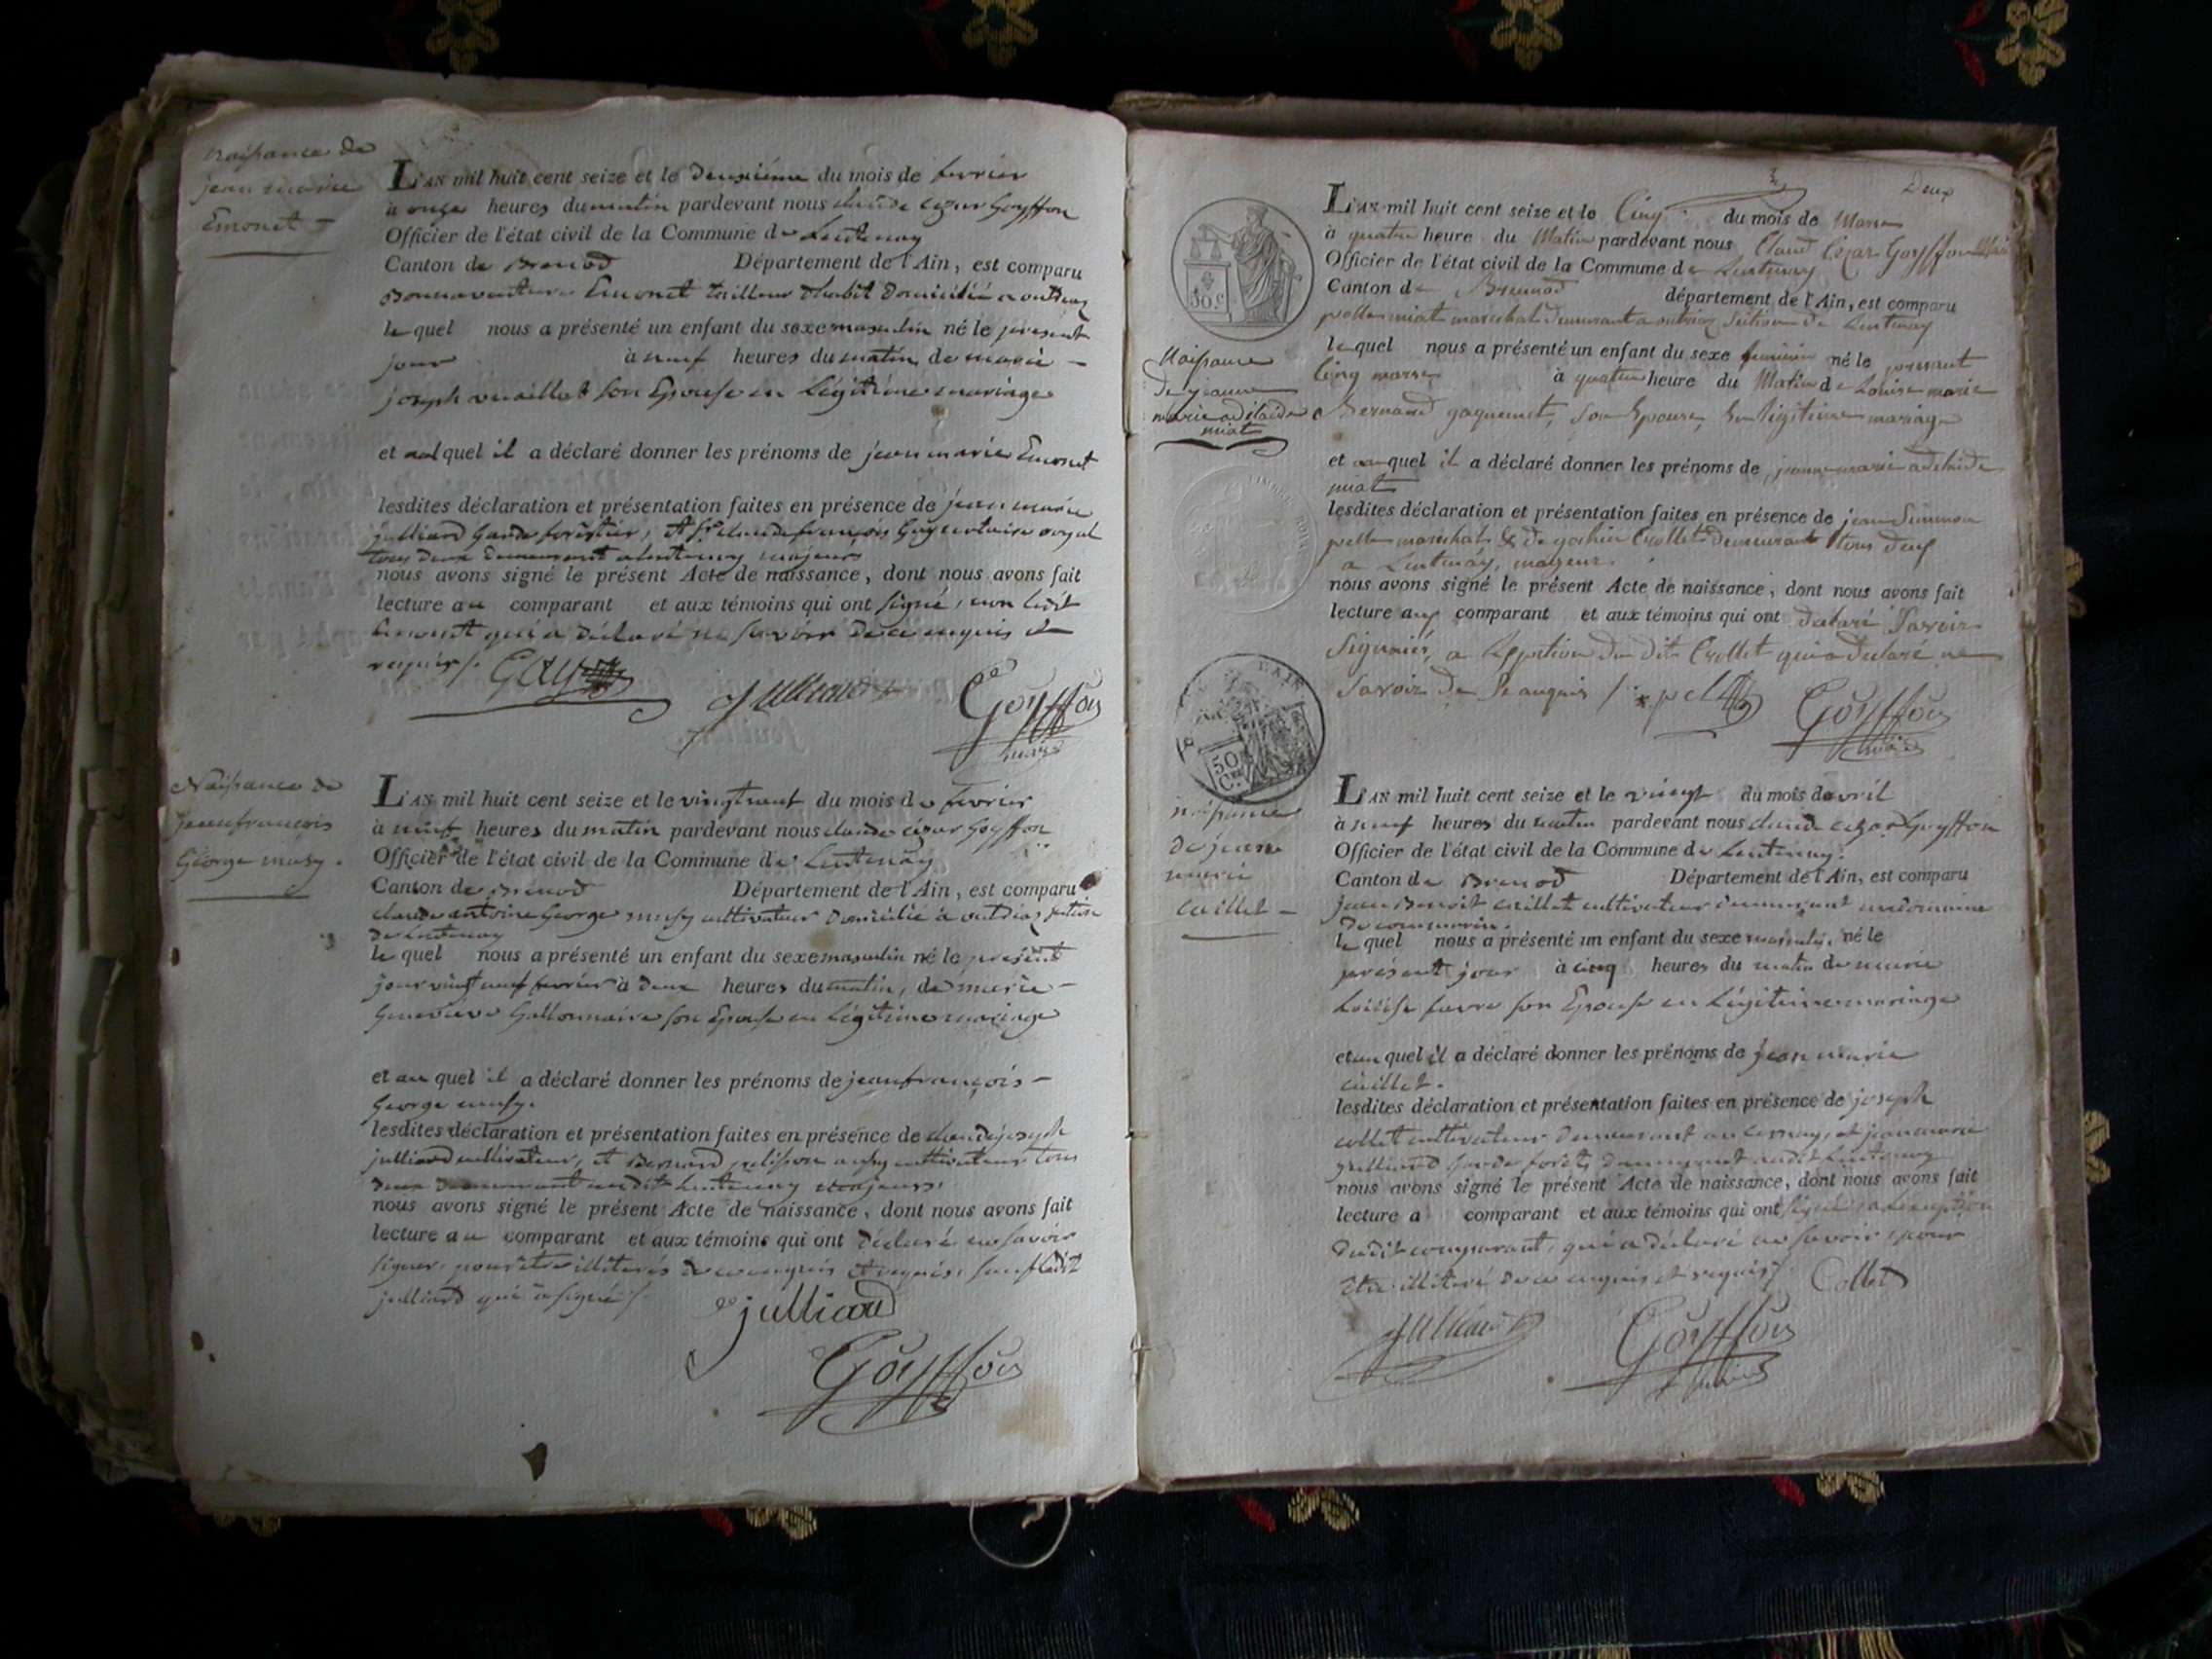 naissance de
jean marie
Emonet
L'AN mil huit cent seize et le deuxiéme du mois de fevrier
à onze heures du matin pardevant nous claude cezar Goyffon
Officier de l'état civil de la Commune de Lentenay
Canton de Brenod Département de l'Ain, est comparu
Bonnaventure Emonet tailleur dhabit domicilié a outriaz
le quel nous a présenté un enfant du sexe masculin né le present
jour à neuf heures du matin de marie
joseph vuaillat son Epouse en Légitime mariage
et auquel il a déclaré donner les prénoms de jean marie Emonet
lesdites déclaration et présentation faites en présence de jean marie
julliard Garde forêstier, et claude françois Guy notaire royal
tous deux demeurant a lentenay majeurs
nous avons signé le présent Acte de naissance, dont nous avons fait
lecture au comparant et aux témoins qui ont signé, non ledit
Emonet qui a déclaré ne savoir de ce enquis et
requis /.
Guy Julliard Goyffon
maire
Naissance de
jean françois
George musy.
L'AN mil huit cent seize et le vingt neuf du mois de fevrier
à neuf heures du matin pardevant nous claude cézar Goyffon
Officier de l'état civil de la Commune de Lentenay
Canton de Brenod Département de l'Ain, est comparu
claude antoine George musy cultivateur domicilié à outriaz section
de Lentenay
le quel nous a présenté un enfant du sexe masculin né le présent
jour vingt neuf fevrier à deux heures du matin, de marie
Genevieve Gallonnaire son Epouse en Légitime mariage
et au quel il a déclaré donner les prénoms de jean françois
George musy.
lesdites déclaration et présentation faites en présence de claude joseph
julliard cultivateur, et Bernard pelisson aussy cultivateur tous
deux demeurant audit Lentenay majeurs.
nous avons signé le présent Acte de naissance, dont nous avons fait
lecture au comparant et aux témoins qui ont déclaré ne savoir
signer, pour etre illiterés de ce enquis et requis, sauf ledit
julliard qui a signé /.
julliard
Goyffon
Deux
50 c.
L'AN mil huit cent seize et le Cinq du mois de Mars
à quatre heure du Matin pardevant nous Claud Cezar Goyffon Maire
Officier de l'état civil de la Commune de Lentenay
Canton de Brennod département de l'Ain, est comparu
miat marechal demeurant a outriaz section de Lentenay
le quel nous a présenté un enfant du sexe feminin né le present
Cinq mars à quatre heure du Matin de Louise marie
Bernard gaquemet, son Epouse, En légitime mariage
Naissance
de jeanne
marie adélaide
miat
et auquel il a déclaré donner les prénoms de jeanne marie adelaide
miat
lesdites déclaration et présentation faites en présence de jean
marechal & de Crollet demeurant tous deux
a Lentenay, majeur.
nous avons signé le présent Acte de naissance, dont nous avons fait
lecture aux comparant et aux témoins qui ont déclaré Savoir
du dit Crollet qui a déclaré ne
Savoir de Ce enquis /.
Goyffon
maire
50
Ces
naissance
de jean
marie
cuillet
L'AN mil huit cent seize et le vingt du mois davril
à neuf heures du matin pardevant nous claude cezar Goyffon
Officier de l'état civil de la Commune de Lentenay.
Canton de Brenod Département de l'Ain, est comparu
jean Benoit cuillet cultivateur demeurant au domaine
de
le quel nous a présenté un enfant du sexe masculin, né le
présent jour à cinq heures du matin de marie
Loüise favre son Epouse en Légitime mariage
et au quel il a déclaré donner les prénoms de jean marie
cuillet.
lesdites déclaration et présentation faites en présence de joseph
collet cultivateur demeurant et jean marie
julliard Garde forêt, demeurant audit Lentenay
nous avons signé le présent Acte de naissance, dont nous avons fait
lecture a comparant et aux témoins qui ont signé a L'exception
dudit comparant, qui a déclaré ne savoir, pour
etre illiteré de ce enquis et requis /. Collet
Julliard Goyffon
maire